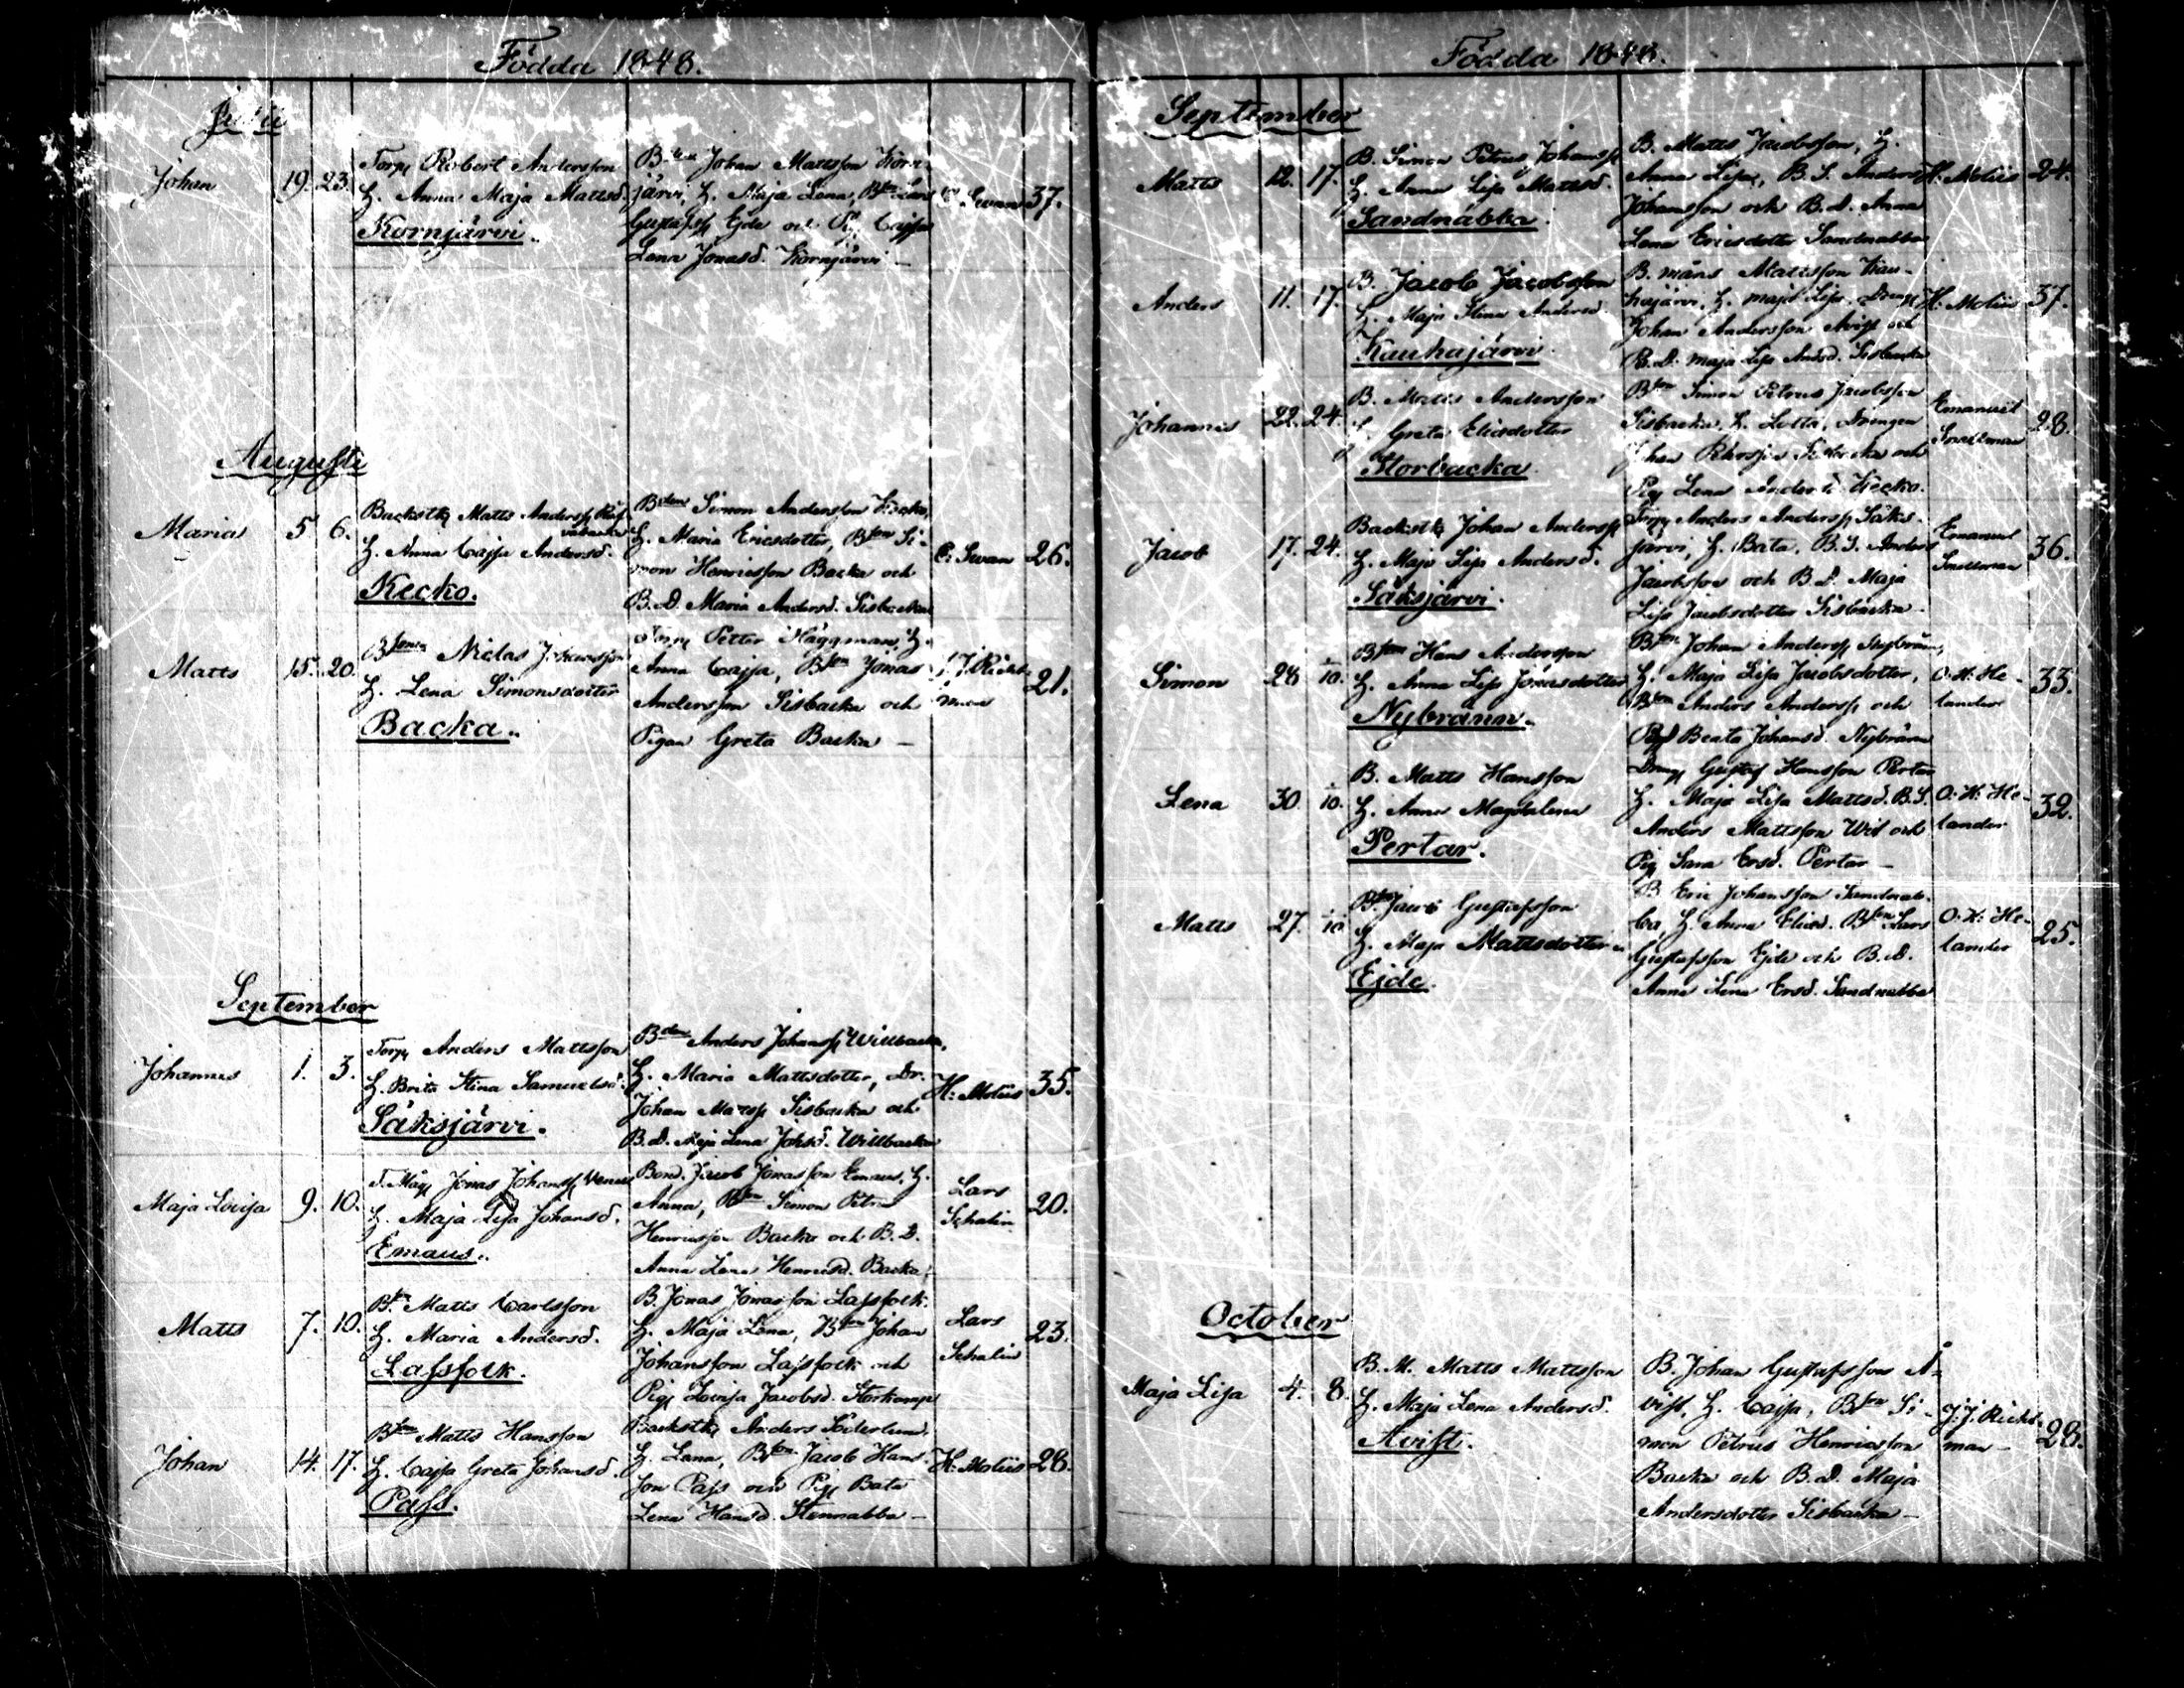 Födda 1848.
Julii
Johan 19. 23. Torp. Robert Andersson
H. Anna Maja Mattsd.
Kornjärvi.
Johan Mattsson Korn-
järvi, H. Maja Lena,
Gustafss. Ejde och Pig. Cajsa
Lena Jonasd. Kornjärvi —
Swan 37.
Augusti
Maria 5. 6. Backstk. Matts Anderss.
H. Anna Cajsa Andersd.
Kecko.
Bden Simon Andersson Kecko,
H. Maria Ericsdotter, Bson Si-
mon Henricsson Backa och
B.D. Maria Andersd. Sisbacka
C. Swan 26.
Matts 15. 20. Bsonen Niclas Johansson
H. Lena Simonsdotter
Backa.
Torp. Petter Häggman, H.
Anna Cajsa, Bson Jonas
Andersson Sisbacka och
Pigan Greta Backa —
J. J. Rickt-
man 21.
September
Johannes 1. 3. Torp. Anders Mattsson
H. Brita Stina Samuelsd.
Säksjärvi.
Bden Anders Johanss. Willbacka,
H. Maria Mattsdotter, Dr.
Johan Matss. Sisbacka och
B.D. Maja Lena Johsd. Willbacka
H: Molüs 35.
Maja Lovisa 9. 10. T. Måg. Jonas Johanss.
H. Maja Lisa Johansd.
Emaus.
Bond. Jacob Jonasson Emaus, H.
Anna, Bson Simon Petr.
Henricsson Backa och B.D.
Anna Lena Henricsd. Backa.
Lars
Schalin 20.
Matts 7. 10. Bsn. Matts Carlsson
H. Maria Andersd.
Lassfolk.
B. Jonas Jonasson Lassfolk.
H. Maja Lena, Bson Johan
Johansson Lassfolk och
Pig. Lovisa Jacobsd. Storkamp
Lars
Schalin 23.
Johan 14. 17. Bson Matts Hansson
H. Cajsa Greta Johansd.
Pass.
Backstk. Anders Söderlund,
H. Lena, Bson Jacob Hans-
son Pass och Pig. Bata
Lena Hansd. Stennabba —
H: Molüs 28.
Födda 1848.
September
Matts 12. 17. B. Simon Petrus Johanss.
H. Anna Lisa Mattsd.
Sandnabba.
B. Matts Jacobsson, H.
Anna Lisa, B.S. Anders
Johansson och B.d. Anna
Lena Ericsdotter Sandnabba
H: Molüs 24.
Anders 11. 17. B. Jacob Jacobsson
H. Maja Stina Andersd.
Kauhajärvi.
B. Måns Mattsson Kau-
hajärvi, H. Maja Lisa, Dreng.
Johan Andersson Åvist och
B.D. Maja Lisa Andsd. Sisbacka
H: Molüs 37.
Johannes 22. 24. B. Matts Andersson
H. Greta Elisdotter
Storbacka.
Bson Simon Petrus Jacobsson
Sisbacka, H. Lotta, Drengen
Johan Sisbacka och
Pig. Lena Andersd. Kecko.
Emanuel
Snellman 28.
Jacob 17. 24. Backstk. Johan Anderss.
H. Maja Lisa Andersd.
Säksjärvi.
Torp. Anders Anderss. Säks-
järvi, H. Bata, B.S. Anders
Jacobsson och B.D. Maja
Lisa Jacobsdotter Sisbacka
Emanuel
Snellman 36.
Simon 28 1/10. Bson Hans Andersson
H. Anna Lisa Jonasdotter
Nybränn.
Bson Johan Anderss. Nybränn,
H. Maja Lisa Jacobsdotter,
Bson Anders Anderss. och
Beata Johansd. Nybränn
O: H: He-
lander 33.
Lena 30. 1/10. B. Matts Hansson
H. Anna Magdalena
Pertar.
Dreng. Gustaf Hansson Pertar
H. Maja Lisa Mattsd. B.S.
Anders Mattsson Wis och
Pig. Sara Ersd. Pertar —
O: H: He-
lander 32.
Matts 27. 1/10 Bson Jacob Gustafsson
H. Maja Mattsdotter
Ejde.
B Eric Johansson Sandnab-
ba, H. Anna Elisd. Bson Lars
Gustafsson Ejde och B.d.
Anna Lena Ersd. Sandnabba
O: H: He-
lander 25.
October
Maja Lisa 4. 8. B. M. Matts Mattsson
H. Maja Lena Andersd.
Åvist.
B. Johan Gustafsson Å-
vist, H. Cajsa, Bson Si-
mon Petrus Henricsson
Backa och B.d. Maja
Andersdotter Sisbacka —
J. J. Rickt-
man — 28.